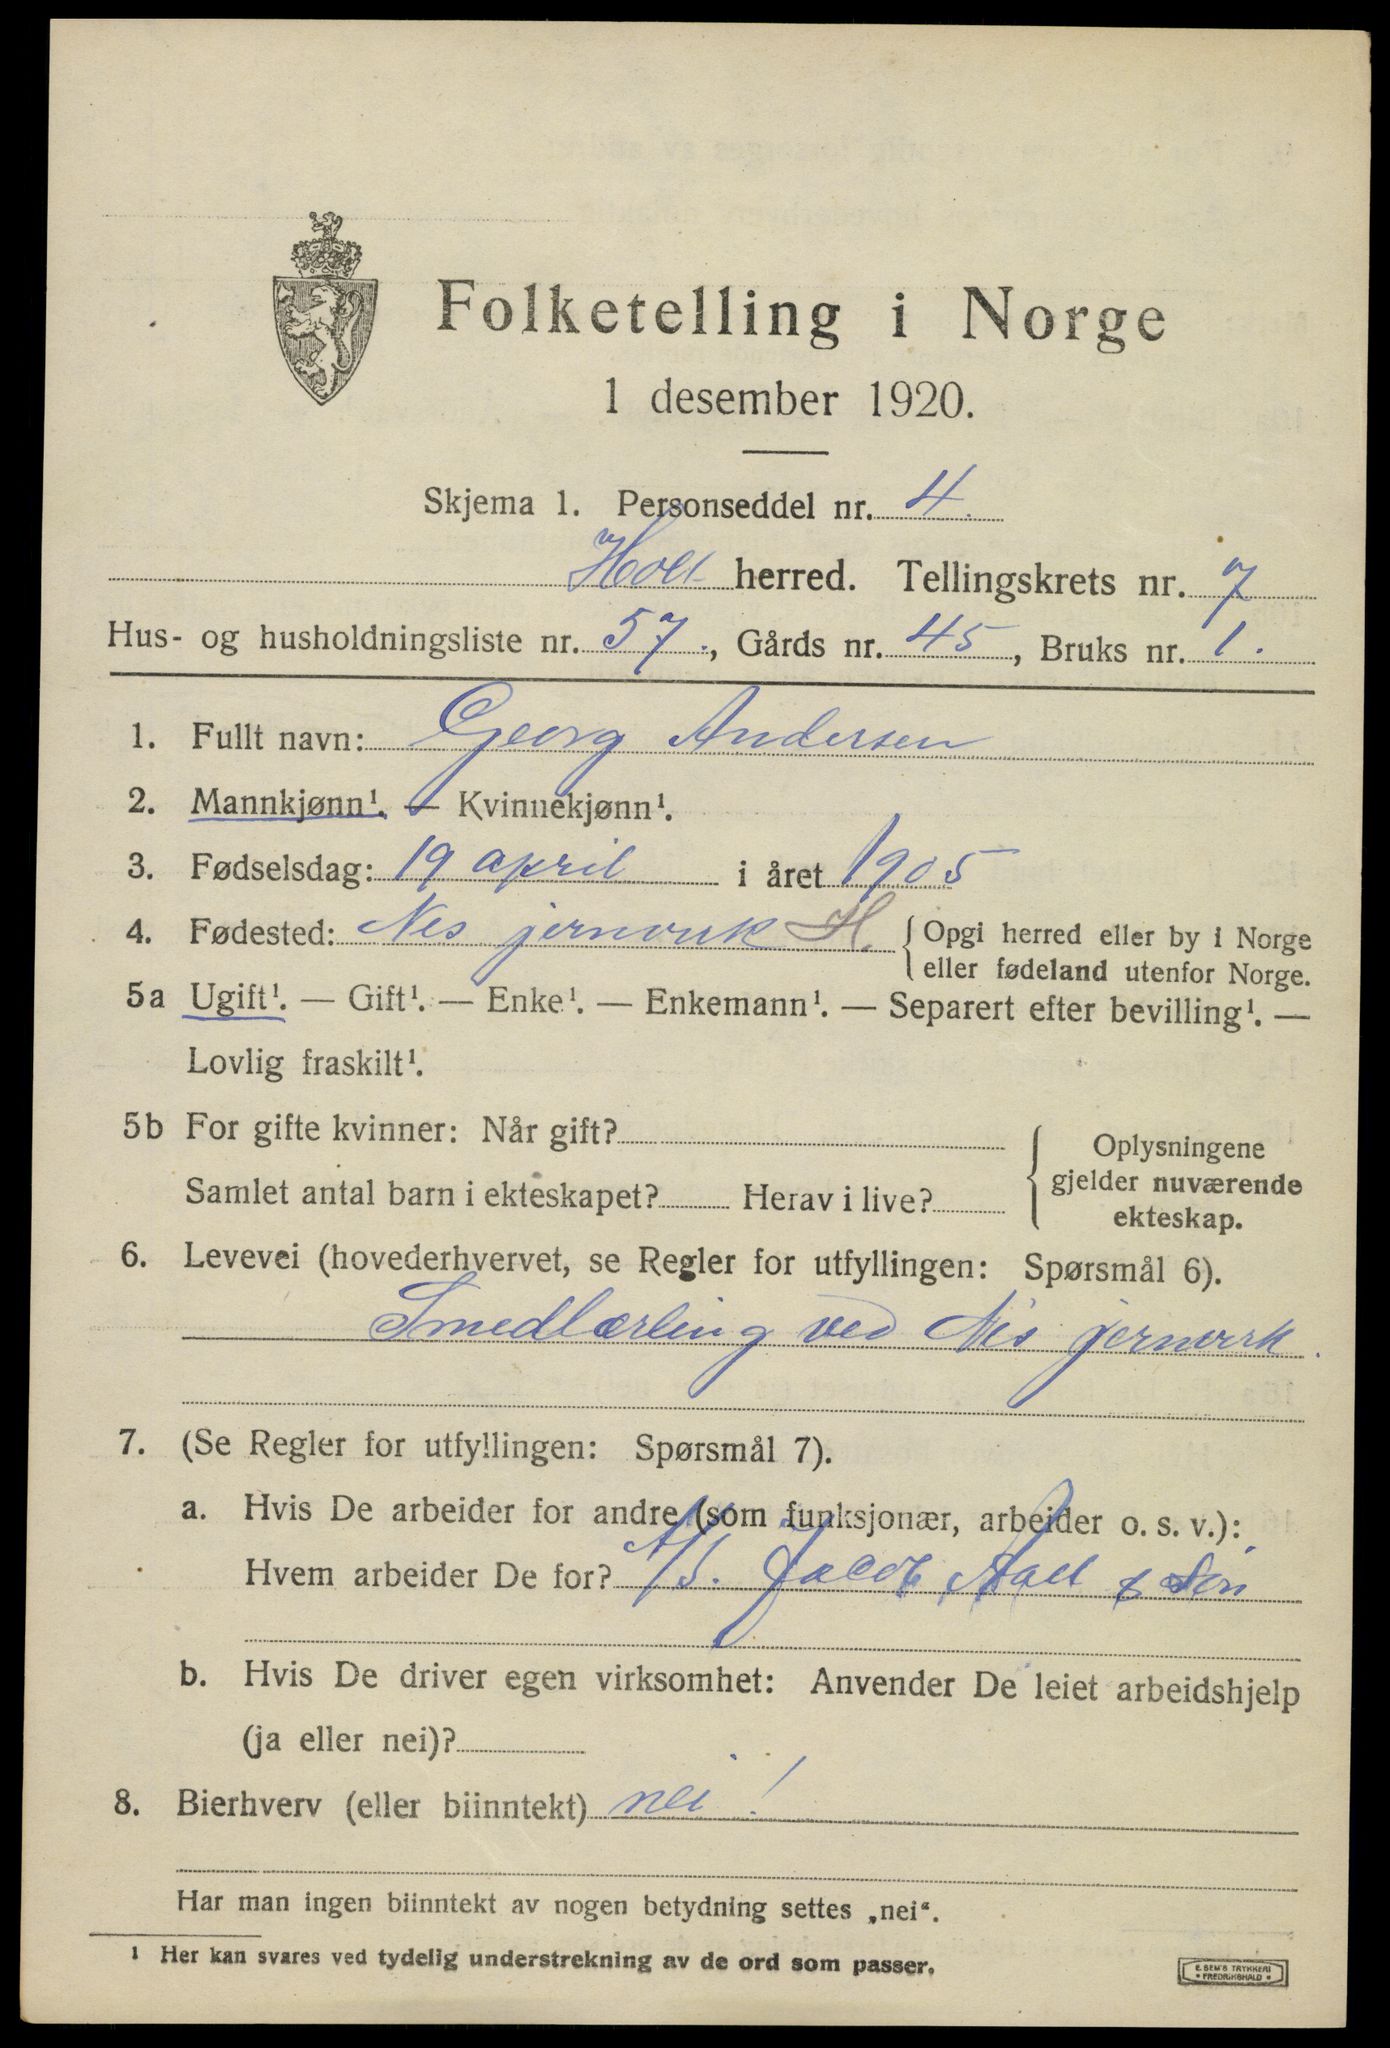 Folketelling i Norge
1 desember 1920.
Skjema 1. Personseddel nr. 4.
Holt herred. Tellingskrets nr. 7
Hus- og husholdningsliste nr. 57., Gårds nr. 45, Bruks nr. 1.
1. Fullt navn: Georg Andersen
2. Mannkjønn¹. — Kvinnekjønn¹.
3. Fødselsdag: 19 april i året 1905
4. Fødested: Nes jernverk H. Opgi herred eller by i Norge
eller fødeland utenfor Norge.
5a Ugift¹. — Gift¹. — Enke¹. — Enkemann¹. — Separert efter bevilling¹. —
Lovlig fraskilt¹.
5b For gifte kvinner: Når gift?
Samlet antal barn i ekteskapet? Herav i live?
Oplysningene
gjelder nuværende
ekteskap.
6. Levevei (hovederhvervet, se Regler for utfyllingen: Spørsmål 6).
Smedlærling ved Nes jernverk.
7. (Se Regler for utfyllingen: Spørsmål 7).
a. Hvis De arbeider for andre (som funksjonær, arbeider o. s. v.):
Hvem arbeider De for? A/S. Jacob Aall & Søn
b. Hvis De driver egen virksomhet: Anvender De leiet arbeidshjelp
(ja eller nei)?
8. Bierhverv (eller biinntekt) nei!
Har man ingen biinntekt av nogen betydning settes „nei“.
1 Her kan svares ved tydelig understrekning av de ord som passer.
E. SEM'S TRYKKERI
* FREDRIKSHALD *